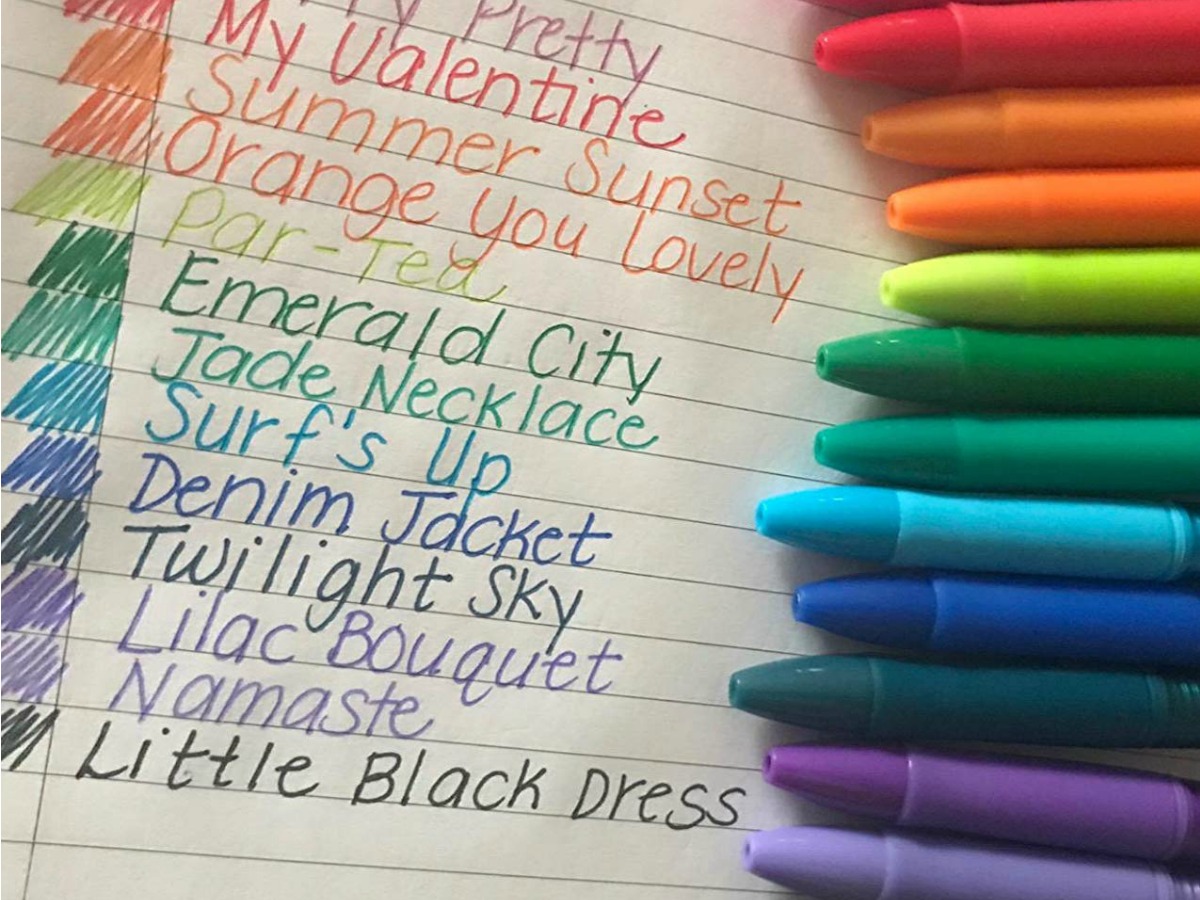 Pretty
My Valentine
Summer Sunset
Orange you Lovely
Par-Tea
Emerald City
Jade Necklace
Surf's Up
Denim Jacket
Twilight Sky
Lilac Bouquet
Namaste
Little Black Dress